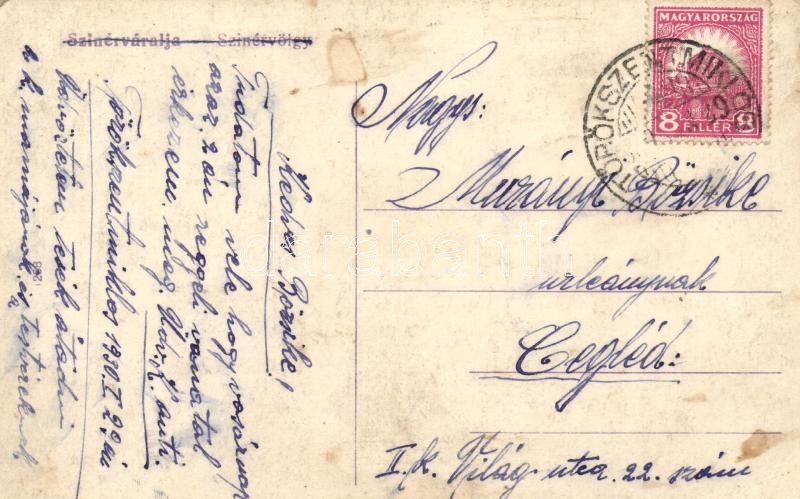 Szinérváralja — Szinérvölgy
Kedves Bözsike!
Tudatom vele hogy vasárnap
azaz 2 án reggeli vonattal
érkezem meg
Törökszentmiklós 1930. I. 29 én
Üdvözletem tessék átadni
a k. mamájának és testvérének
1268
MAGYARORSZÁG
8 FILLÉR 8
TÖRÖKSZENTMIKLÓS
Nagys:
Murányi Bözsike
urleánynak
Cegléd:
II. k. Világ utca. 22. szám
darabanth